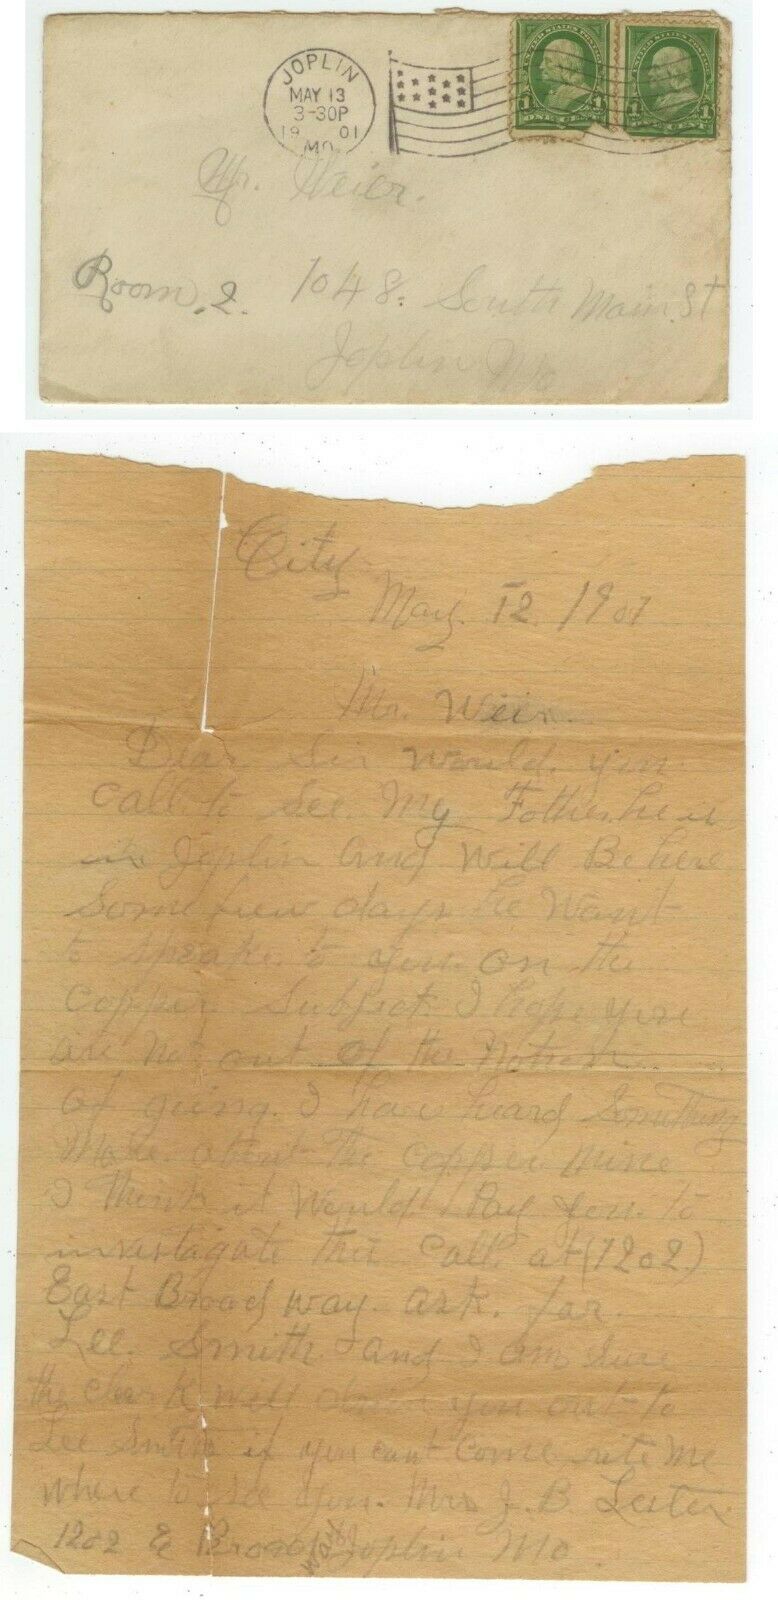 JOPLIN
MAY 13
3-30P
19 01
MO.
UNITED STATES POSTAGE
1 ONE CENT 1
1 ONE CENT 1
Mr. Weier.
Room. 2. 1048. South Main. St
Joplin Mo
City
May. 12. 1901
Mr. Weir.
Dear Sir would. you
call. to see. My Father he is
in Joplin And will Be here
some few days he want
to speak. to you. on the
copper. Subject. I hope you
are not out of the Notion
of going. I have heard something
More. about The copper mine
I think it would Pay you. to
investagate this call. at (1202)
East Broad way. ask. for.
Lee. Smith. and I am sure
the clerk will you out to
Lee Smith if you can't come rite me
where to see you. Mrs J. B. Lester
1202 E Broad way Joplin Mo